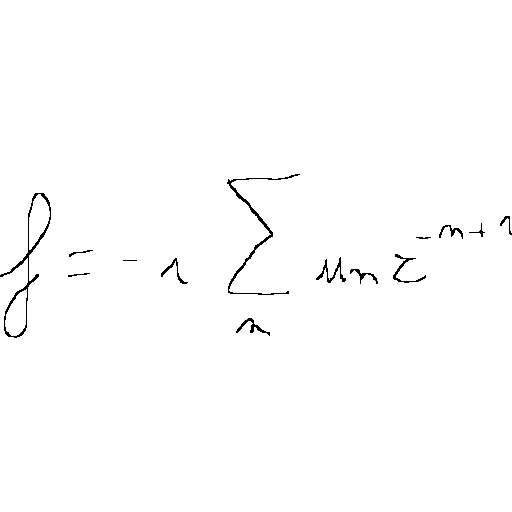 f = - i \sum_{n} u_n z^{-n+1}